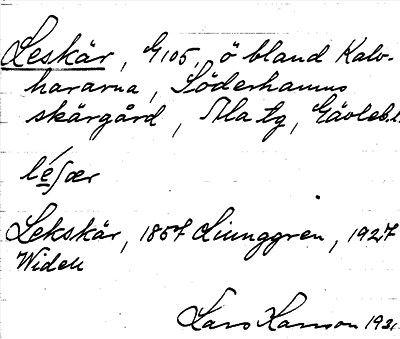 Leskär, G105, ö bland Kalv-
hararna, Söderhamns
skärgård, Ala tg, Gävleb.l.
le̲ʃær
Lekskär, 1857 Ljunggren, 1927
Widell
Lars Hanson 1931